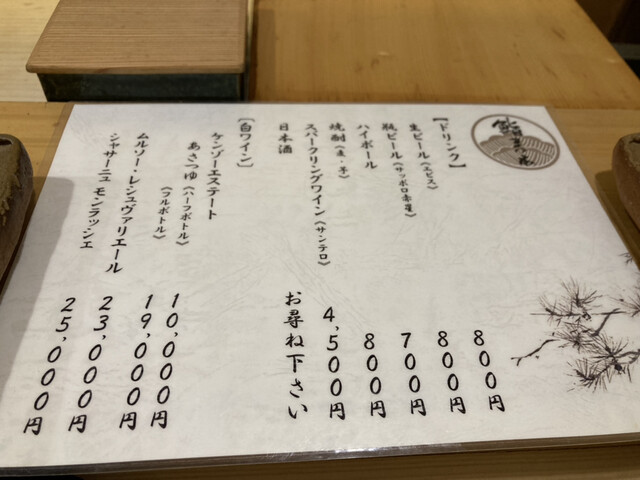 【ドリンク】
生ビール（エビス） 800円
瓶ビール（サッポロ赤星） 800円
ハイボール 700円
焼酎（麦・芋） 800円
スパークリングワイン（サンテロ） 4,500円
日本酒 お尋ね下さい
【白ワイン】
ケンゾーエステート
あさつゆ（ハーフボトル） 10,000円
（フルボトル） 19,000円
ムルソー・レシュヴァリエール 23,000円
シャサーニュ モンラッシェ 25,000円